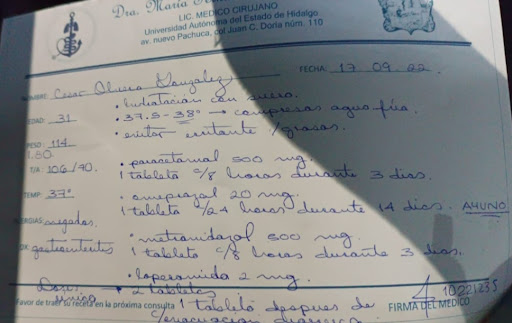 Dra. María
LIC. MEDICO CIRUJANO
Universidad Autónoma del Estado de Hidalgo
av. nuevo Pachuca, col Juan C. Doria núm. 110
FECHA: 17.09.22.
NOMBRE: Cesar Olvera Gonzalez
• hidratación con suero.
EDAD: 31
• 37.5-38° → compresas agua fría.
• evitar irritante y/grasas.
PESO: 114
1.80
• paracetamol 500 mg.
T/A: 106/90.
1 tableta c/8 horas durante 3 dias.
TEMP: 37°
• omeprazol 20 mg.
1 tableta c/24 horas durante 14 dias. AYUNO
negadas.
• metronidazol 500 mg.
DX: gastroenteritis
1 tableta c/8 horas durante 3 dias.
• loperamida 2 mg.
Dosis única → 2 tabletas
1 tableta despues de
c/evacuación diarreica
Favor de traer su receta en la próxima consulta
1022i235
FIRMA DEL MEDICO